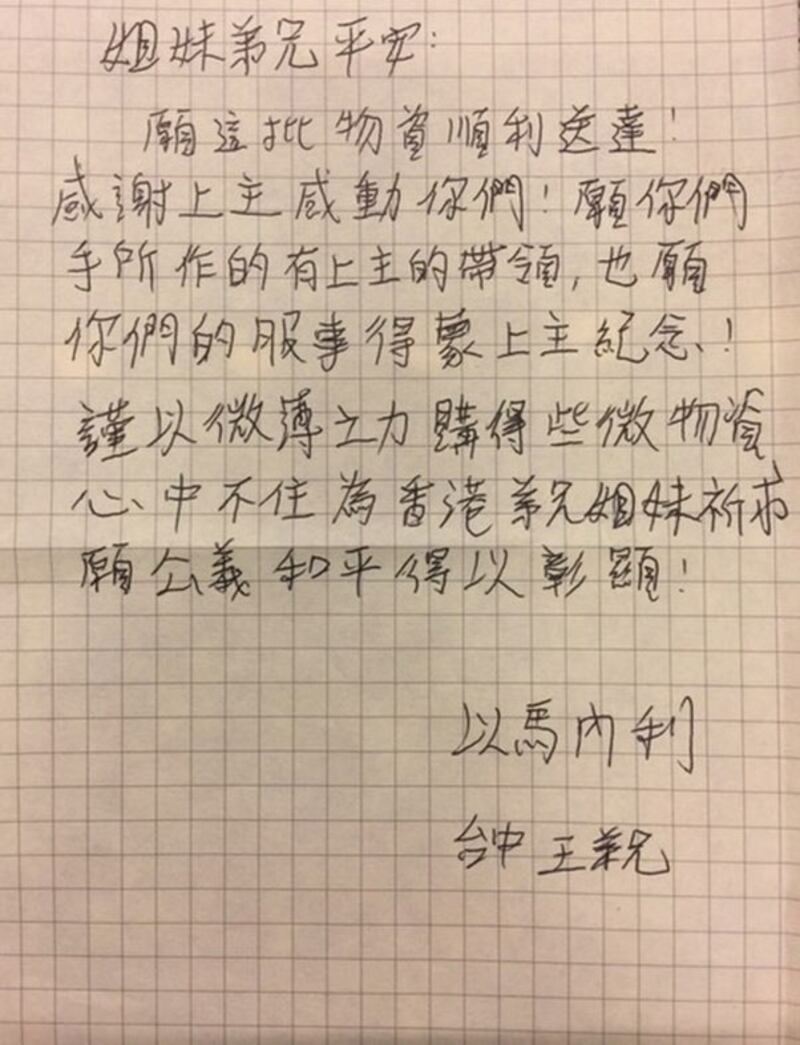 姐妹弟兄平安：
願這批物資順利送達！
感謝上主感動你們！願你們
手所作的有上主的帶領，也願
你們的服事得蒙上主紀念！
謹以微薄之力購得些微物資，
心中不住為香港弟兄姐妹祈求
願公義和平得以彰顯！
以馬內利
台中 王弟兄